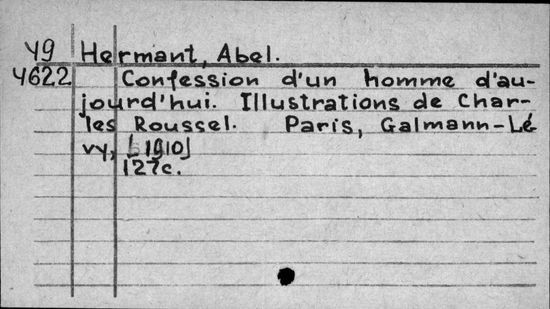 Y9 Hermant, Abel.
4622 Confession d'un homme d'au-
jourd'hui. Illustrations de Char-
les Roussel. Paris, Galmann-Lé
vy, [1910]
127c.